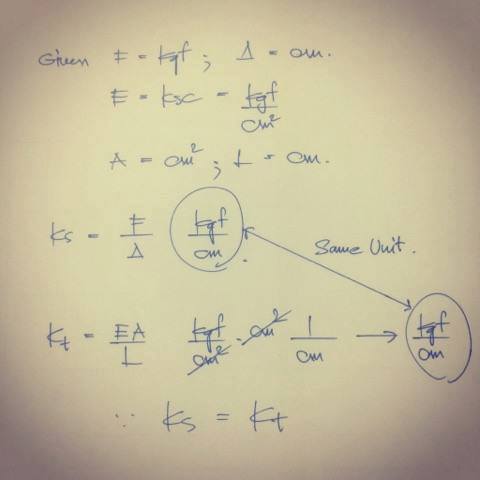 Given F = kgf ; Δ = cm.
E = ksc = kgf/cm²
A = cm² ; L = cm.
ks = F/Δ kgf/cm .
Same Unit .
Kt = EA/L kgf/cm² · cm² 1/cm → kgf/cm
∵ Ks = Kt